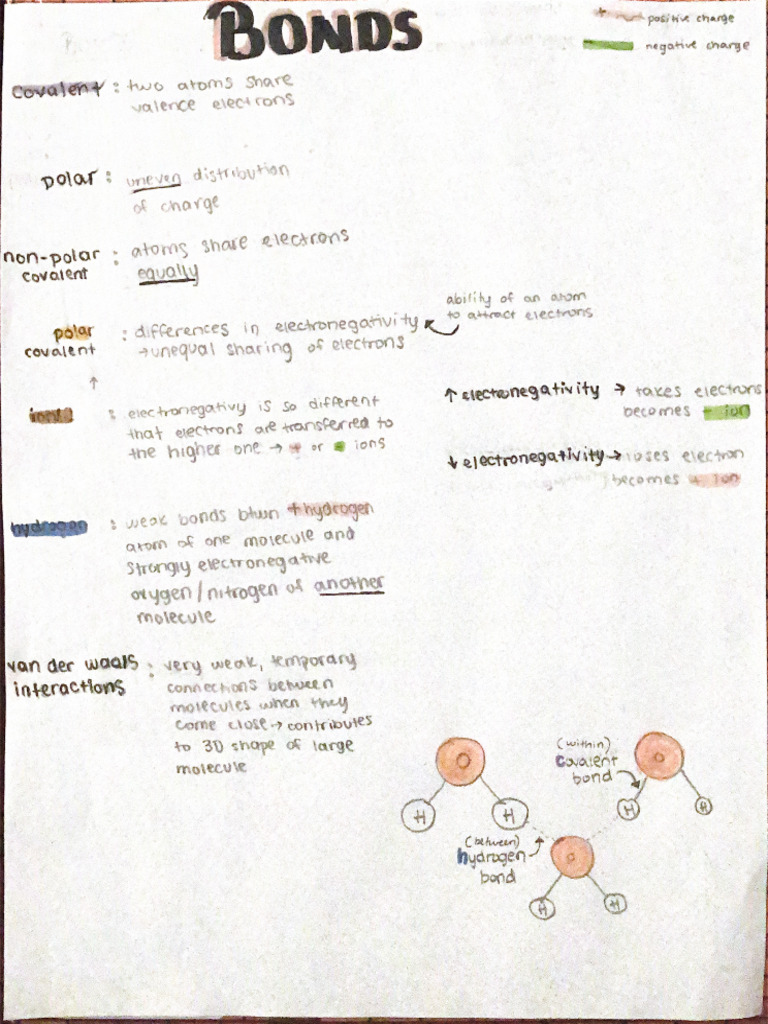 BONDS
+ positive charge
negative charge
covalent : two atoms share
valence electrons
polar : uneven distribution
of charge
non-polar
covalent : atoms share electrons
equally
polar
covalent : differences in electronegativity
→ unequal sharing of electrons
ability of an atom
to attract electrons
↑
ionic : electronegativy is so different
that electrons are transferred to
the higher one → + or - ions
↑ electronegativity → takes electrons
becomes - ion
↓ electronegativity → loses electron
becomes + ion
hydrogen : weak bonds btwn + hydrogen
atom of one molecule and
strongly electronegative
oxygen/nitrogen of another
molecule
van der waals
interactions : very weak, temporary
connections between
molecules when they
come close → contributes
to 3D shape of large
molecule
O
H
H
(within)
covalent
bond
O
H
H
(between)
hydrogen
bond
O
H
H